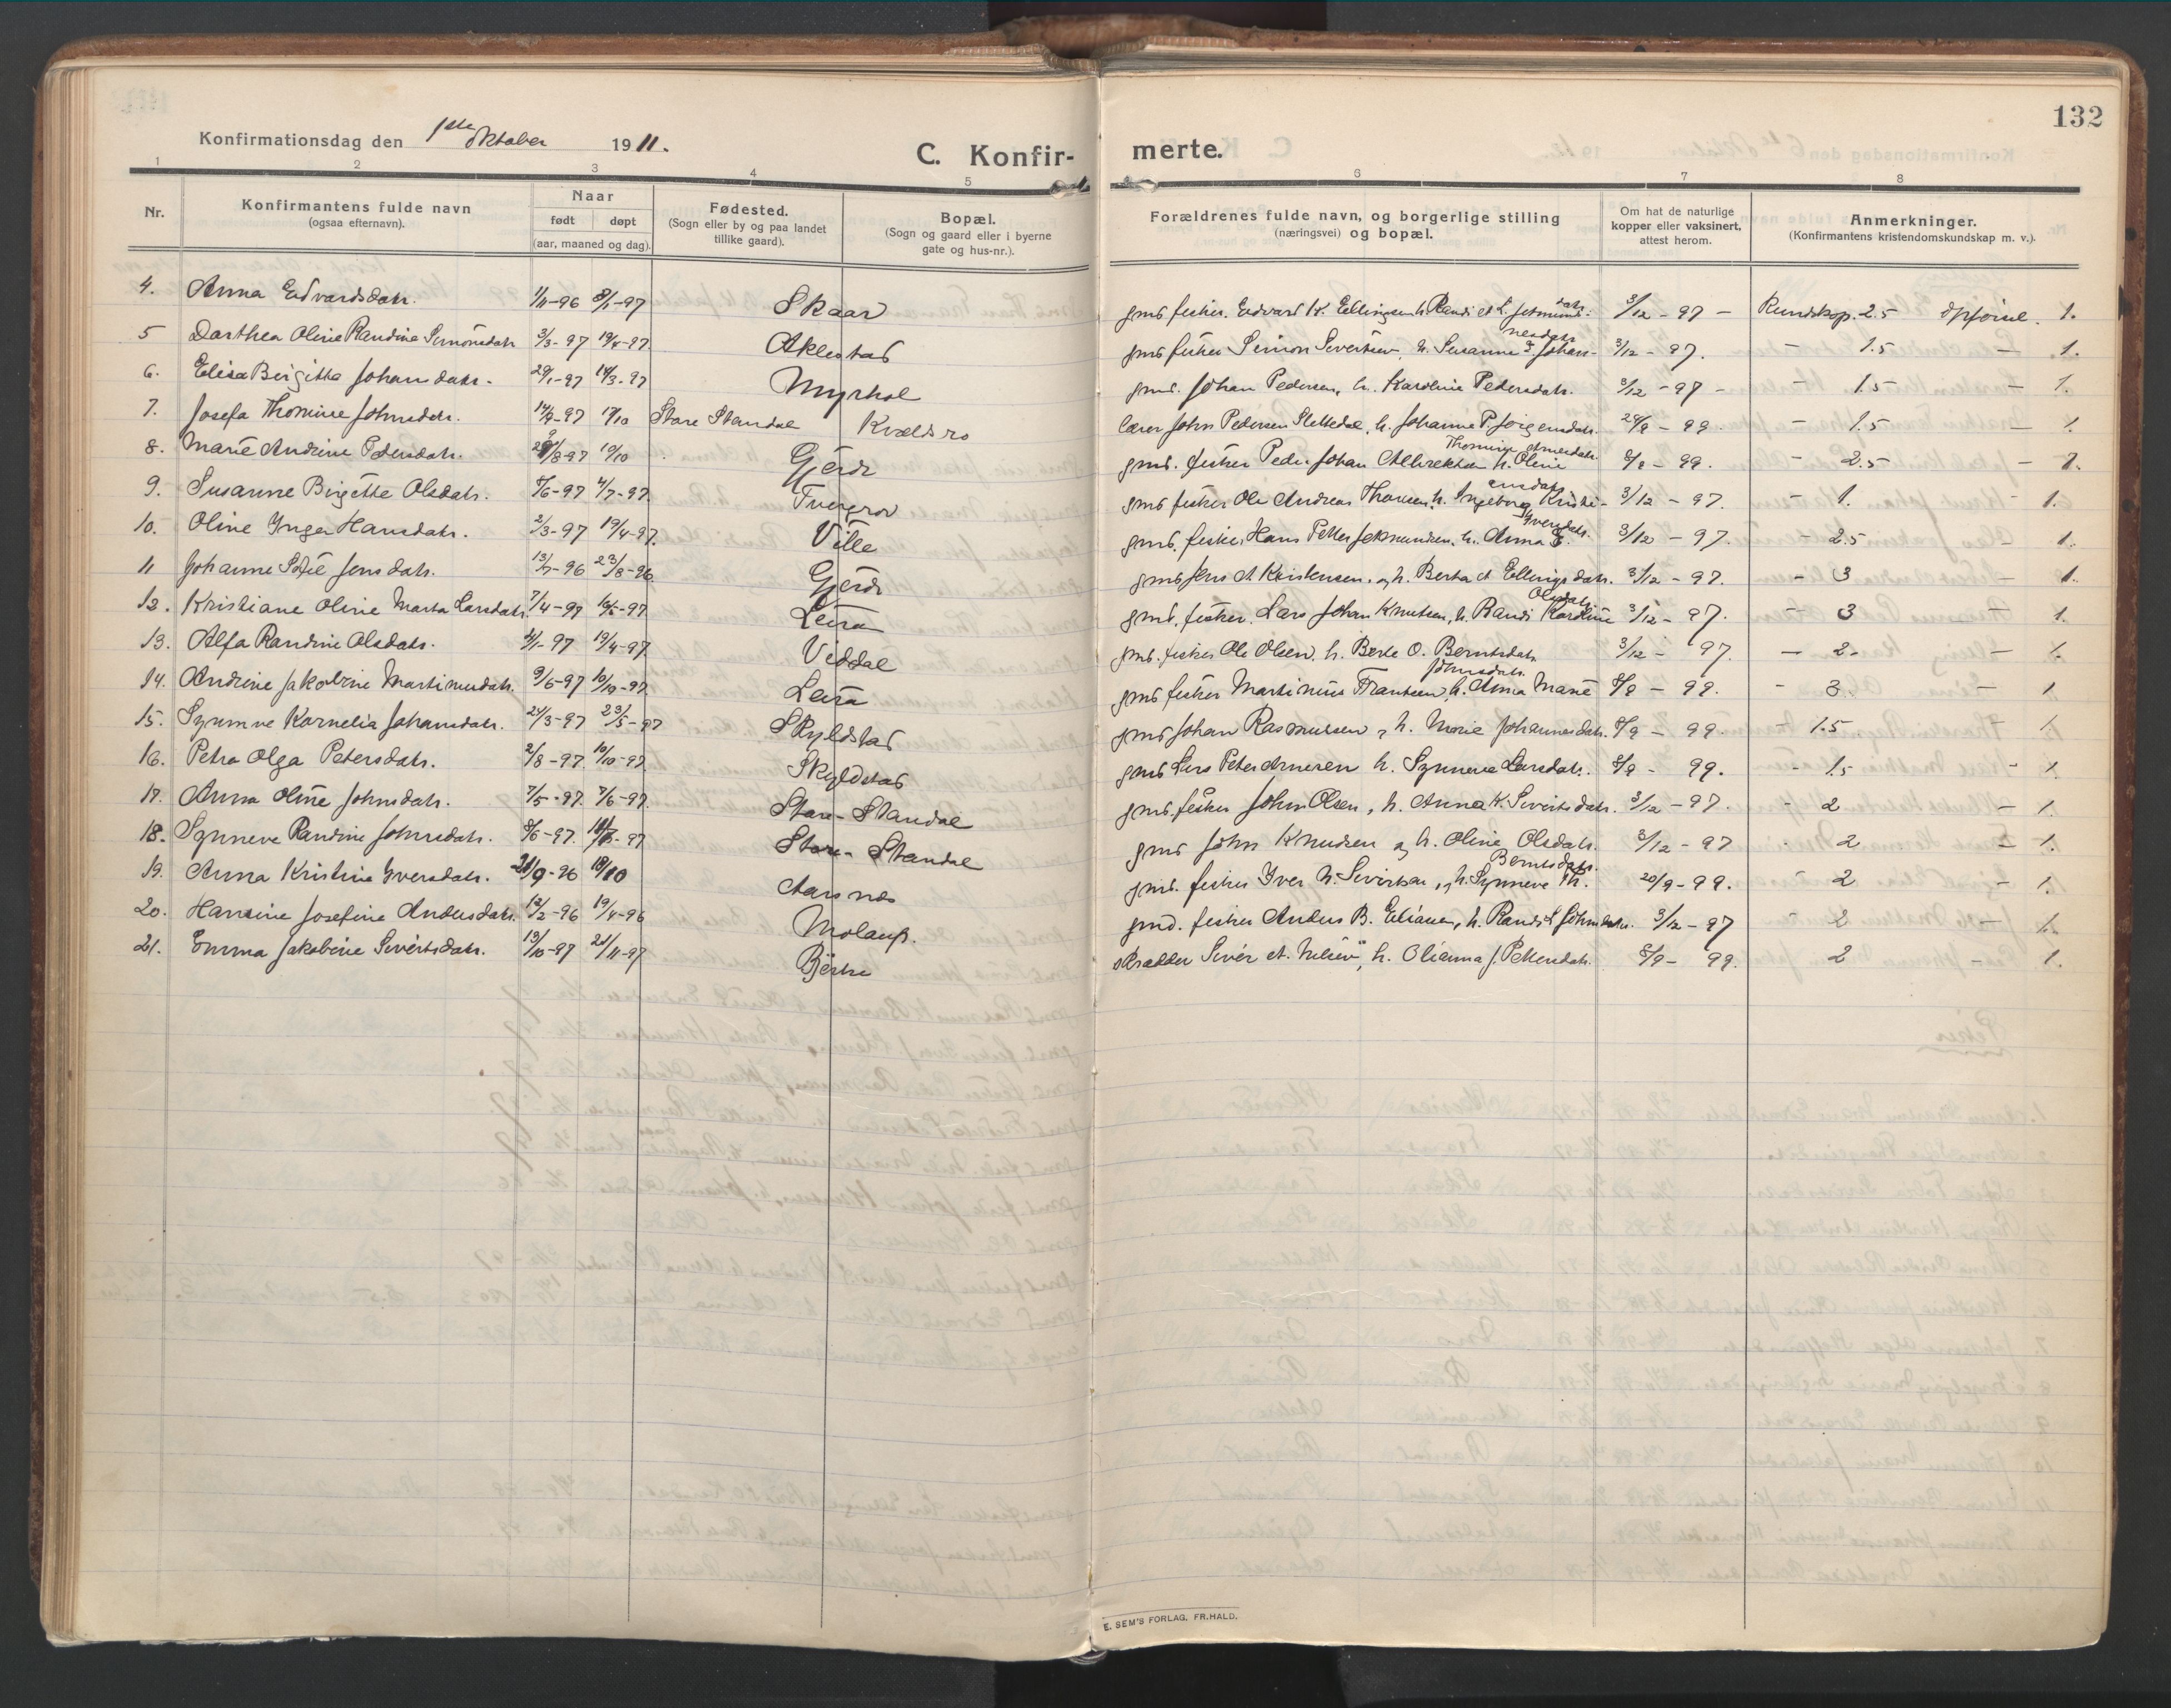 132
Konfirmationsdag den 1ste Oktober 1911.
C. Konfir- merte.
1 2 3 4 5 6 7 8
Nr.
Konfirmantens fulde navn
(ogsaa efternavn).
Naar
født døpt
(aar, maaned og dag).
Fødested.
(Sogn eller by og paa landet
tillike gaard).
Bopæl.
(Sogn og gaard eller i byerne
gate og hus-nr.).
Forældrenes fulde navn, og borgerlige stilling
(næringsvei) og bopæl.
Om hat de naturlige
kopper eller vaksinert,
attest herom.
Anmerkninger.
(Konfirmantens kristendomskundskap m. v.).
4. Anna Edvardsdatr. 1/11-96 8/1-97 Skaar gmb fisker. Edvard K. Ellingsen h. Randi 3/12 - 97 - Kundskap. 2.5 Opførsel. 1.
5 Dorthea Oline Randine Simonsdatr 3/3-97 19/4-97 Aklestad gmb fisker Simon Severtsen, h. Susanne J. Johan- nesdatr 3/12 - 97. - 1.5 - 1.
6. Elisa Birgitta Johansdatr. 29/1-97 14/3-97 Myrhol gmb. Johan Pedersen, h. Karoline Pedersdatr. 3/12 - 97 - - 1.5 - 1.
7. Josefa Thomine Johnsdatr. 17/10 Store Standal Kveldsro Lærer John Pedersen Slettedal, h. Johanne P. Jørgensdatr. 29/9 - 99. - 1.5 - 1.
8. Marie Andrine Pedersdatr. 10/10 Gjerde gmb. fisker Peder Johan Albrektsen h. Oline Thomine 8/9 - 99. - 2.5 - 1.
9. Susanne Birgitte Olsdatr. 5/6-97 4/7-97 Tvergrov gmb fisker Ole Andreas Thomsen h. Ingeborg Kristi- ansdatr 3/12 - 97. - 1. - 1.
10. Oline Inga Hansdatr. 2/3-97 19/4-97. Ville gmb. fisker Hans Petter Jetmundsen, h. Anna J. Iversdatr. 3/12 - 97. - 2.5 - 1.
11 Johanne Sofie Jensdatr. 13/7-96 23/8-96 Gjerde gmb Jens A Kristensen. og h. Berta A Ellingsdatr. 3/12 - 97. - 3 - 1.
12. Kristiane Oline Marta Larsdatr. 7/4-97 10/6-97 Leira gmb. fisker. Lars Johan Knutsen, h. Randi Karoline Olsdatr 3/12 - 97. - 3 1.
13. Alfa Randine Olsdatr. 4/1-97 19/4-97. Viddal gmb. fisker Ole Olsen, h. Berte O. Berntsdatr 3/12 - 97. - 2 - 1.
14. Andrine Jakobine Martinusdatr. 9/6-97 10/10-97 Leira gmb fisker Martinius Frantsen, h. Anna Marie Johnsdatr. 8/9 - 99. - 3 - 1
15. Synnve Kornelia Johansdatr. 24/3-97 23/5-97 Skyldstad gmb Johan Rasmussen, h. Marie Johannesdatr. 8/9 - 99 - 1.5 1.
16. Petra Olga Petersdatr. 2/8-97 10/10-97 Skyldstad gmb Lars Peter Arnesen h. Synneve Larsdatr. 8/9 - 99. - 1.5 - 1.
17. Anna Oline Johnsdatr. 7/5-97. 7/6-97. Store-Standal gmb. fisker John Olsen, h. Anna K. Sivertsdatr. 3/12 - 97. - 2 - 1.
18. Synneve Randine Johnsdatr. 8/6-97. Store-Standal gmb John Knudsen og h. Oline Olsdatr. 3/12 - 97 - 2 - 1.
19. Anna Kristine Iversdatr. 21/9-96 18/10 Aarsnes gmb. fisker Iver N. Sivertsen, h. Synneve Th. Berntsdatr. 29/9-99. - 2 - 1.
20. Hansine Josefine Andersdatr. 12/2-96 19/4-96 Molaup. gmd. fisker Anders B. Eliassen, h. Randi L Johnsdatr. 3/12-97 2 - 1.
21. Emma Jakobine Sivertsdatr. 13/10-97 21/11-97 Bjørke skrædder Siver A. Nilsen, h. Olianna J. Pettersdatr. 8/9 - 99. 2 - 1.
E. SEM'S FORLAG, FR.HALD.